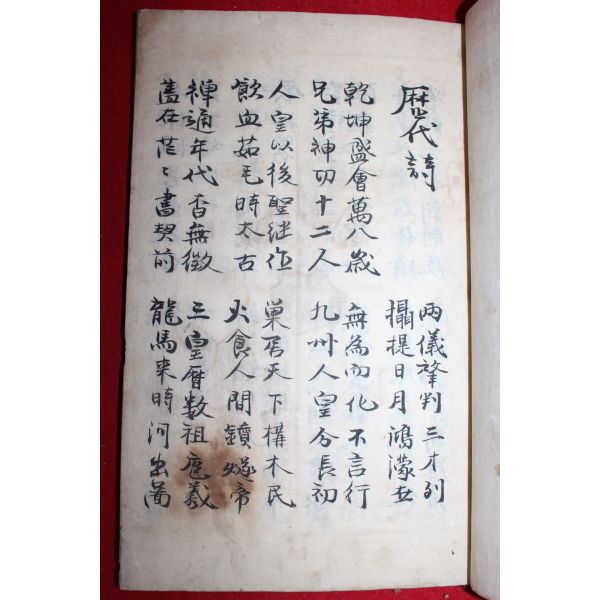 歷代詩
兩儀肇判三才列
攝提日月鴻濛世
乾坤盛會萬八歲
無為而化不言行
兄弟神功十二人
九州人皇分長初
人皇以後聖继作
巢居天下構木民
飮血茹毛時太古
火食人間鑽燧帝
禪通年代杳無徵
三皇曆数祖庖羲
蓋在茫〻書契前
龍馬来時河出圖